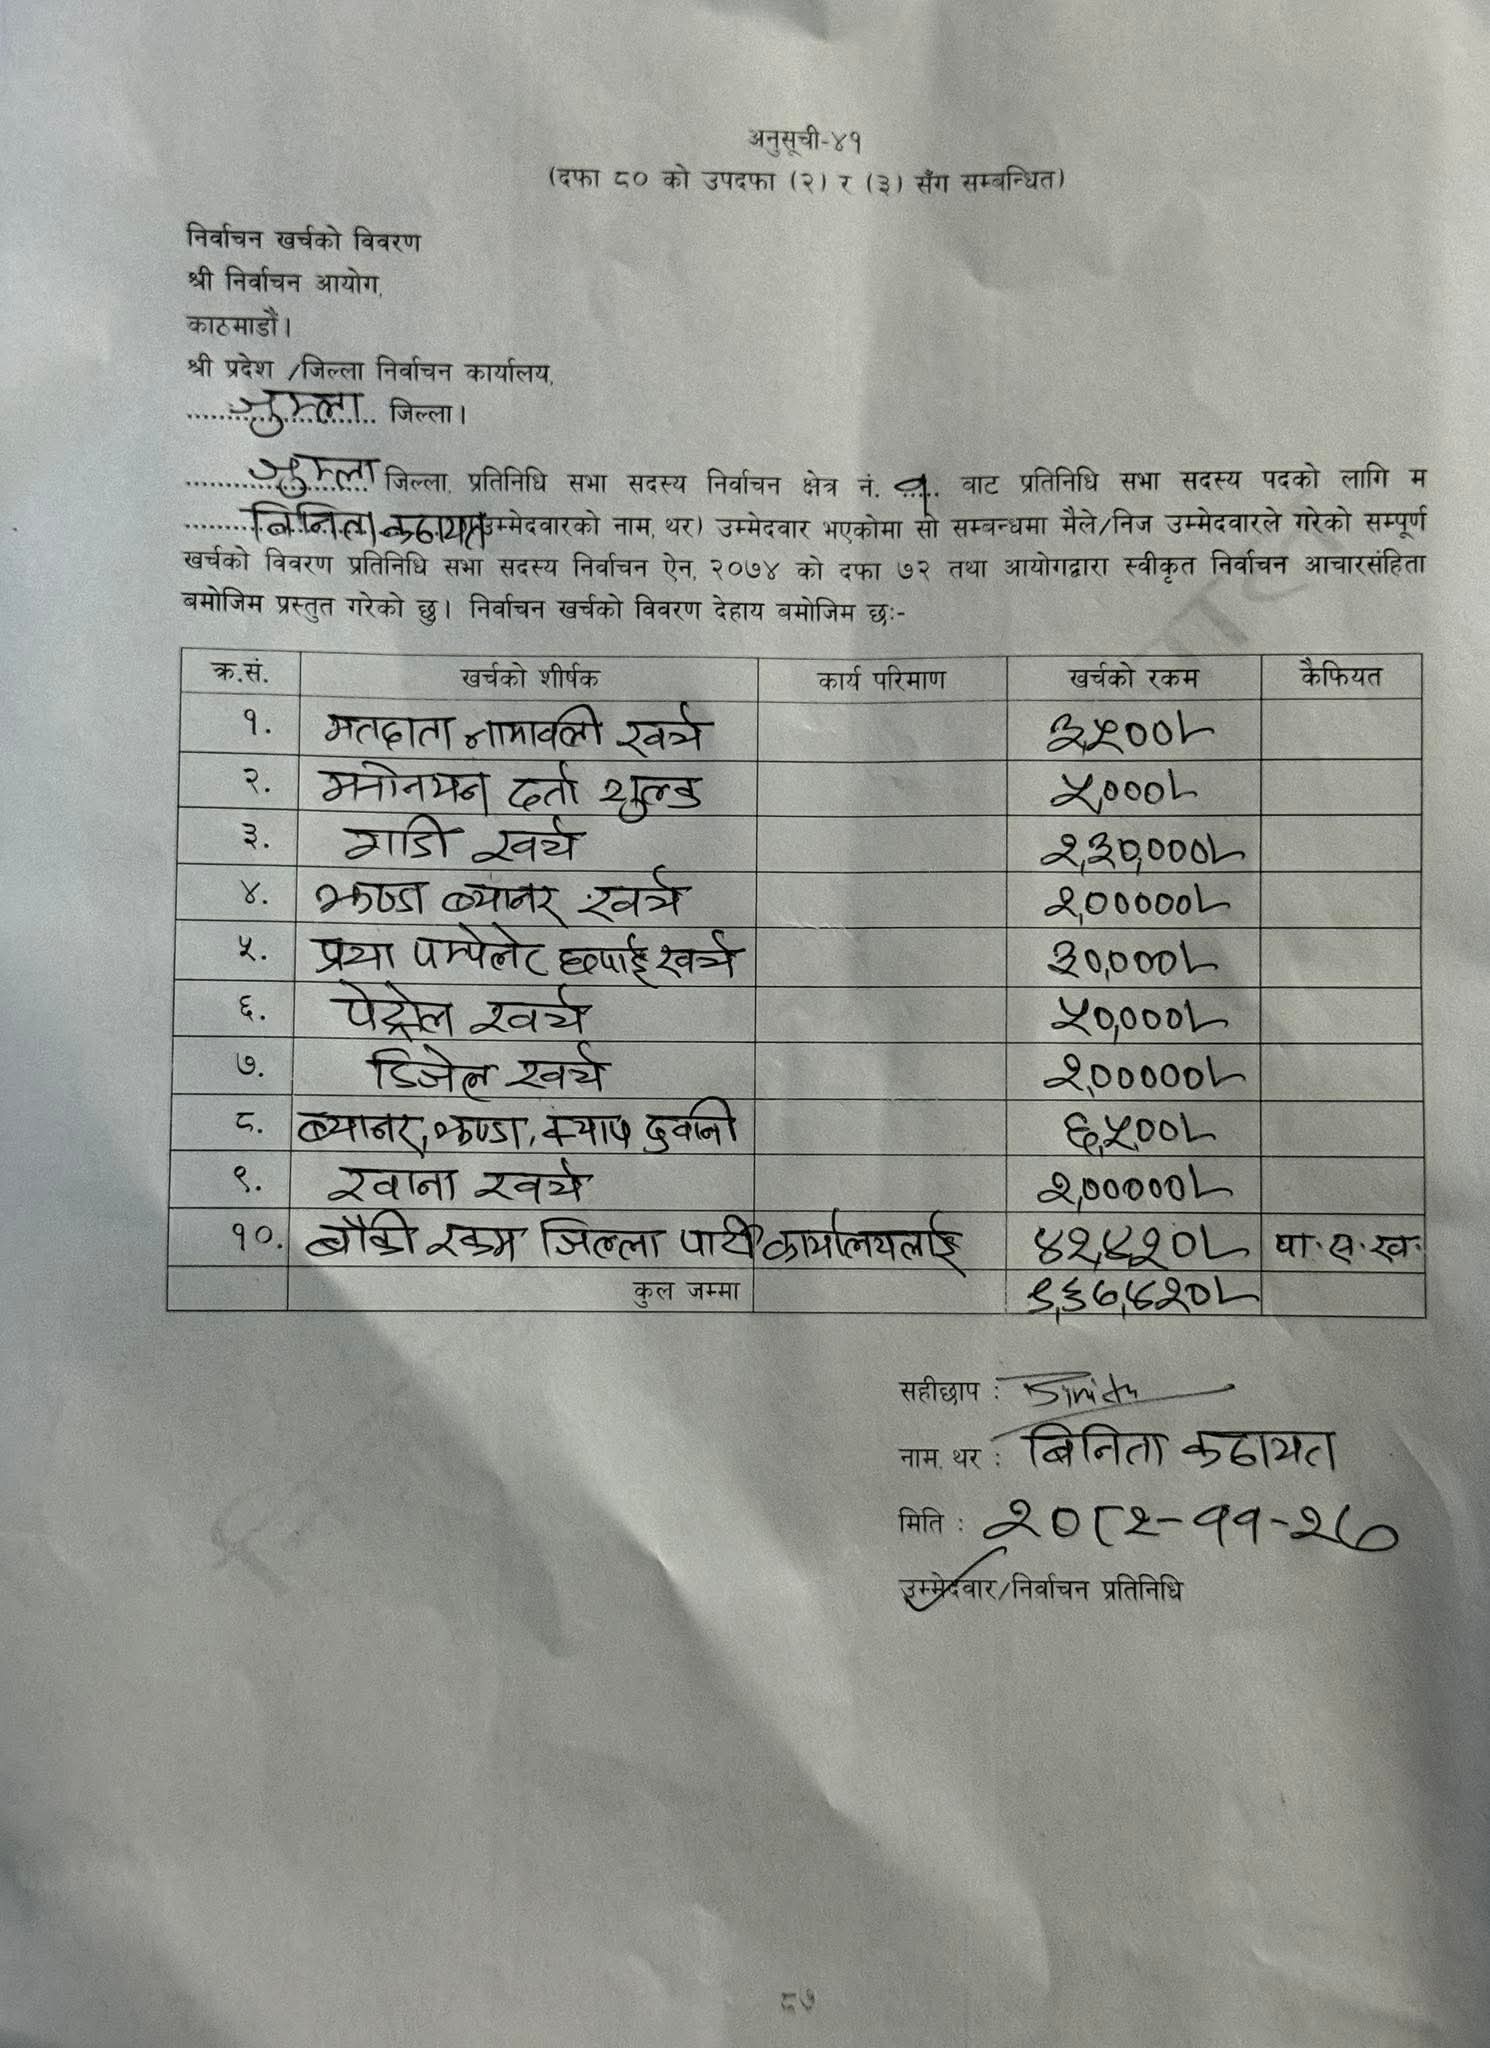 अनुसूची-४१
(दफा ८० को उपदफा (२) र (३) सँग सम्बन्धित)
निर्वाचन खर्चको विवरण
श्री निर्वाचन आयोग,
काठमाडौं।
श्री प्रदेश /जिल्ला निर्वाचन कार्यालय,
जुम्ला जिल्ला।
जुम्ला जिल्ला, प्रतिनिधि सभा सदस्य निर्वाचन क्षेत्र नं. १ बाट प्रतिनिधि सभा सदस्य पदको लागि म
बिनिता कठायत उम्मेदवारको नाम, थर) उम्मेदवार भएकोमा सो सम्बन्धमा मैले/निज उम्मेदवारले गरेको सम्पूर्ण
खर्चको विवरण प्रतिनिधि सभा सदस्य निर्वाचन ऐन, २०७४ को दफा ७२ तथा आयोगद्वारा स्वीकृत निर्वाचन आचारसंहिता
बमोजिम प्रस्तुत गरेको छु। निर्वाचन खर्चको विवरण देहाय बमोजिम छः-
क्र.सं. खर्चको शीर्षक कार्य परिमाण खर्चको रकम कैफियत
१. मतदाता नामावली खर्च ३,५००/-
२. मनोनयन दर्ता शुल्क ५,०००/-
३. गाडी खर्च २,३०,०००/-
४. झण्डा ब्यानर खर्च २,०००००/-
५. प्रचा पम्पेलेट छपाई खर्च ३०,०००/-
६. पेट्रोल खर्च ५०,०००/-
७. डिजेल खर्च २,०००००/-
८. ब्यानर, झण्डा, क्याप ढुवानी ६,५००/-
९. खाना खर्च २,०००००/-
१०. बाँकी रकम जिल्ला पार्टी कार्यालयलाई ४२,४२०/- पा.स.ख.
कुल जम्मा ९,६७,४२०/-
सहीछाप : Binita
नाम, थर : बिनिता कठायत
मिति : २०८२-११-२७
उम्मेदवार/निर्वाचन प्रतिनिधि
८७